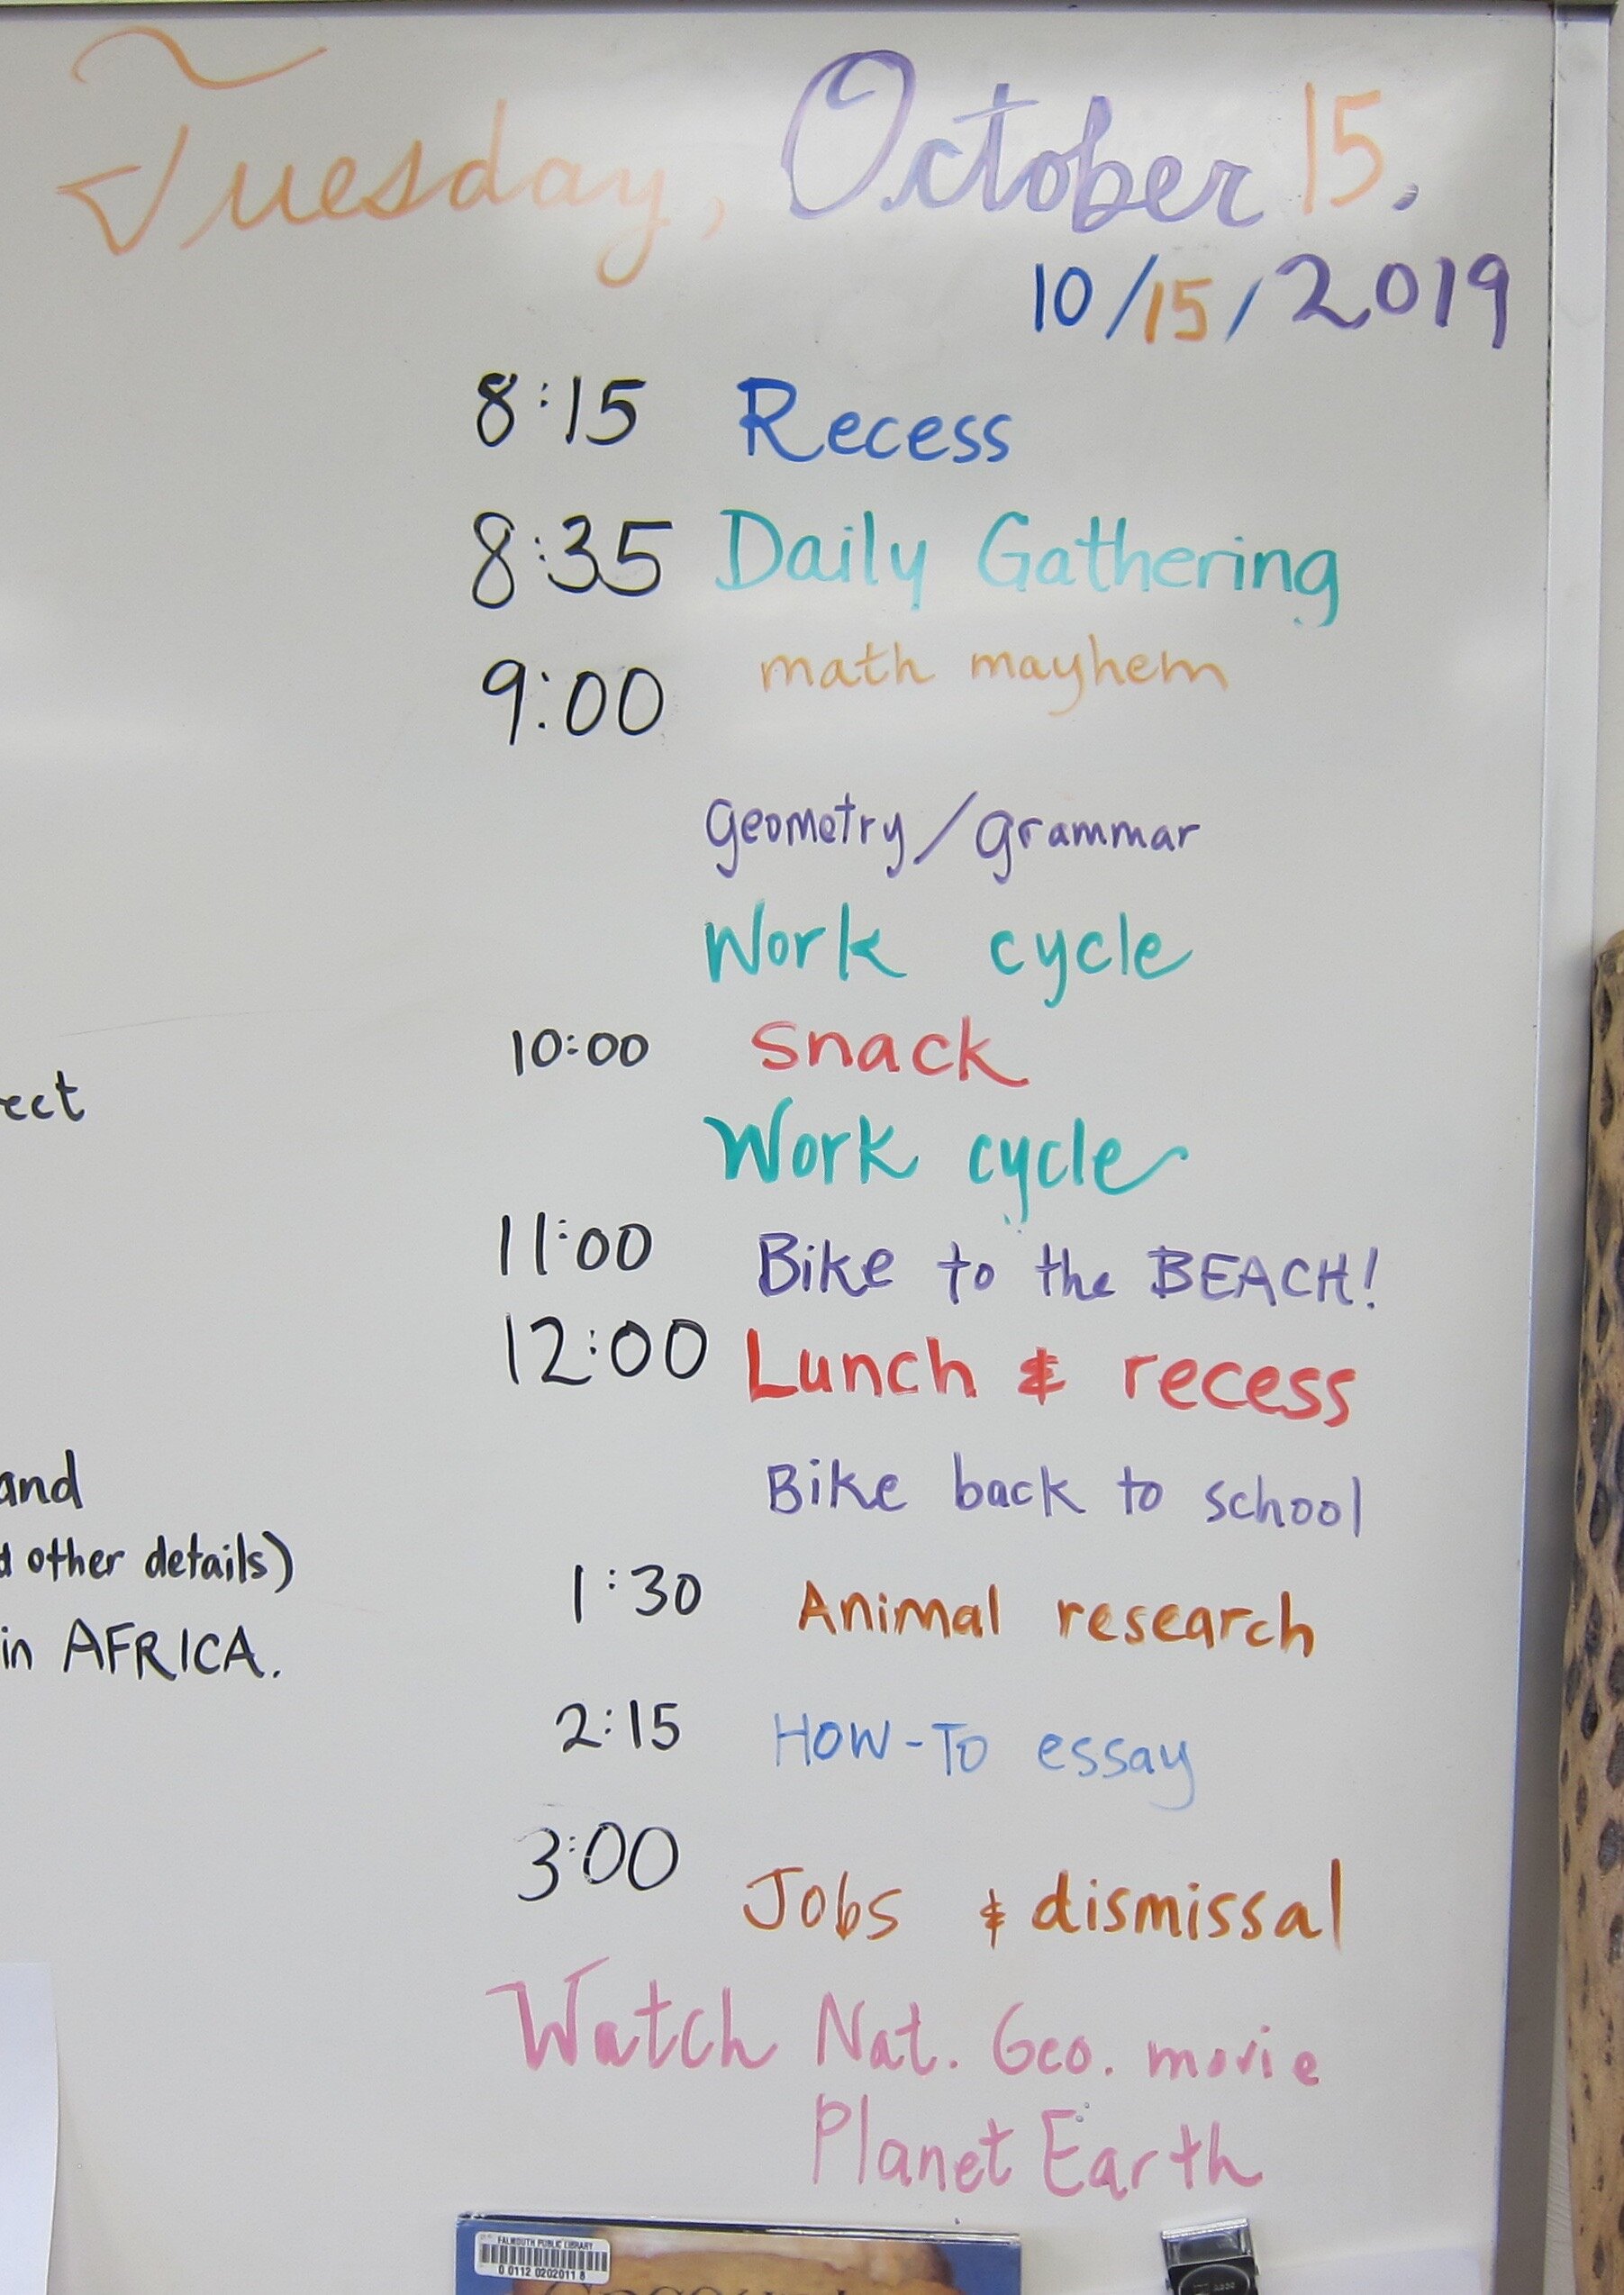 Tuesday, October 15,
10/15/2019
8:15 Recess
8:35 Daily Gathering
9:00 math mayhem
geometry/grammar
Work cycle
10:00 Snack
ect
Work cycle
11:00 Bike to the BEACH!
12:00 Lunch & recess
and
Bike back to school
other details)
1:30 Animal research
in AFRICA.
2:15 HOW-TO essay
3:00 Jobs & dismissal
Watch Nat. Geo. movie
Planet Earth
FALMOUTH PUBLIC LIBRARY
0 0112 0202011 8